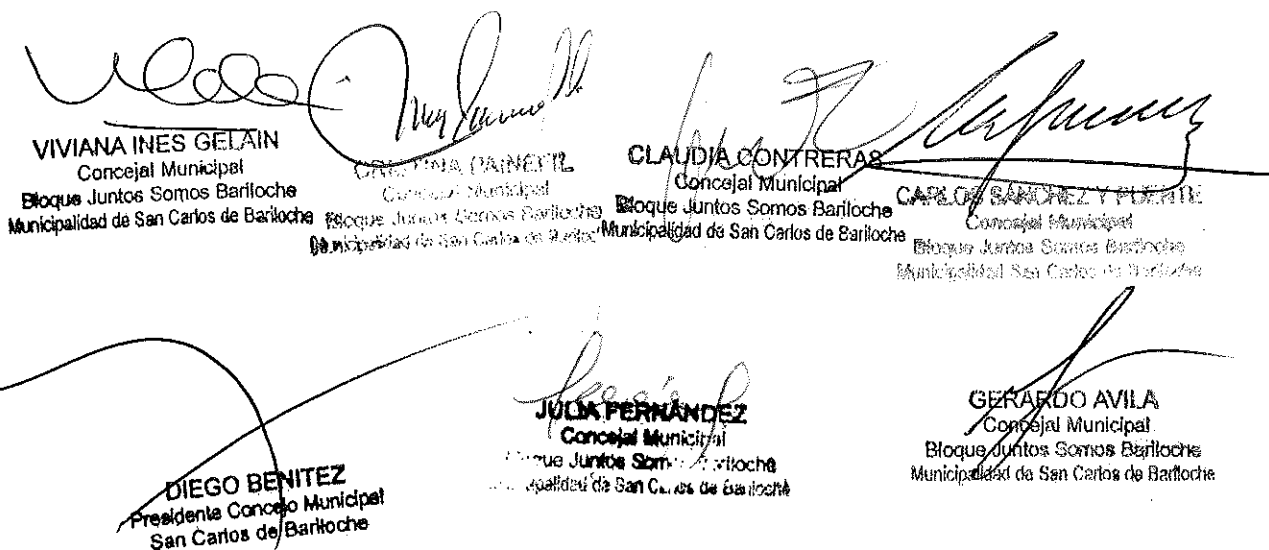 VIVIANA INES GELAIN
Concejal Municipal
Bloque Juntos Somos Bariloche
Municipalidad de San Carlos de Bariloche
CRISTINA PAINEFIL
Concejal Municipal
Bloque Juntos Somos Bariloche
Municipalidad de San Carlos de Bariloche
CLAUDIA CONTRERAS
Concejal Municipal
Bloque Juntos Somos Bariloche
Municipalidad de San Carlos de Bariloche
CARLOS SÁNCHEZ Y PUENTE
Concejal Municipal
Bloque Juntos Somos Bariloche
Municipalidad San Carlos de Bariloche
DIEGO BENITEZ
Presidente Concejo Municipal
San Carlos de Bariloche
JULIA FERNÁNDEZ
Concejal Municipal
Bloque Juntos Somos Bariloche
Municipalidad de San Carlos de Bariloche
GERARDO AVILA
Concejal Municipal
Bloque Juntos Somos Bariloche
Municipalidad de San Carlos de Bariloche